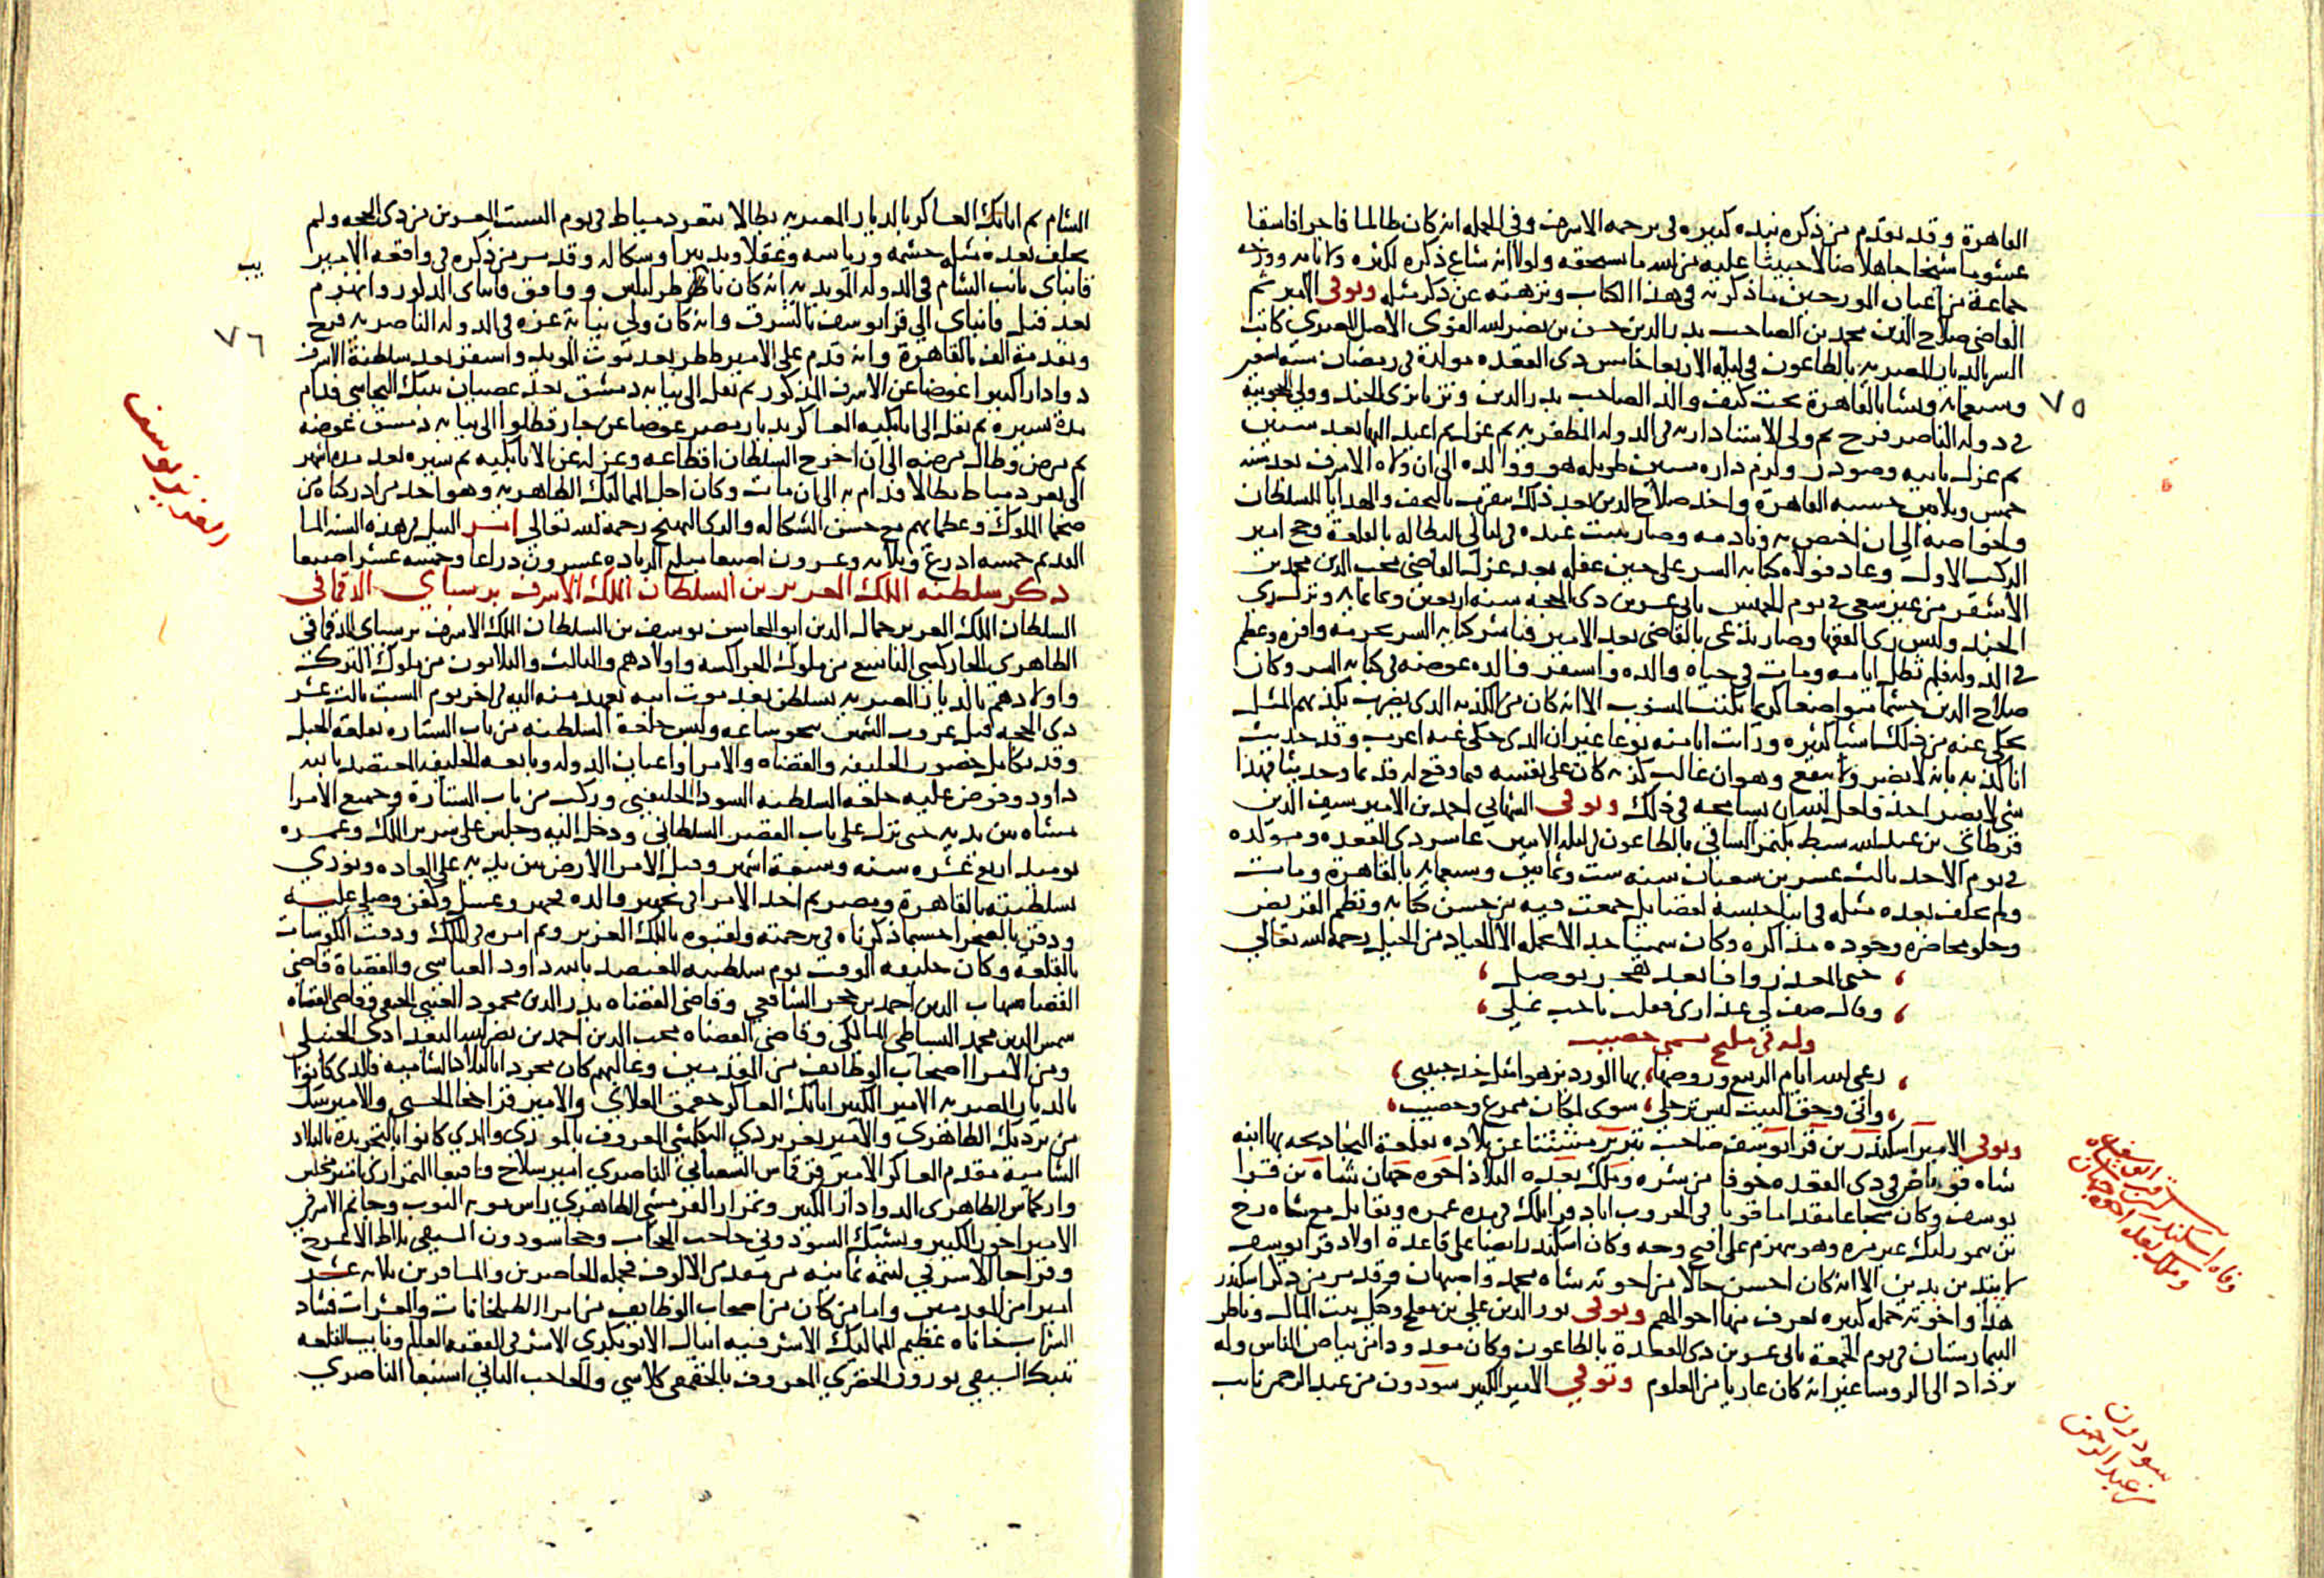 القاهرة وقد تقدم من ذكره نبذه كبيره في ترجمه الاشرف وفي الجمله انه كان ظالما فاجرا فاسقا
عشوما شيخا جاهلا ضالا خبيثا عليه من الله ما يستحقه ولولا انه شاع ذكره لكثره ولاياته
جماعة من اعيان المورخين ما ذكرته في هذا الكتاب ونزهته عن ذكر مثله وتوفي الامير ثم
القاضي صلاح الدين محمد بن الصاحب بدر الدين حسن بن نصر الله الفوي الاصل المصري كاتب
السر بالديار المصريه بالطاعون في ليله الاربعا خامس ذي القعده مولده في رمضان سنه تسعين
٧٥
وسبعمايه ونشا بالقاهرة تحت كنف والده الصاحب بدر الدين وتزيا بزي الجند وولي الحجوبيه
في دوله الناصر فرج ثم ولي الاستادارية في الدوله المظفريه ثم عزل ثم اعيد اليها بعد سنين
ثم عزل ثانيه وصودر ولزم داره سنين طويله هو ووالده الى ان ولاه الاشرف بعد سنه
خمس وثلاثين حسبه القاهرة واخذ صلاح الدين بعد ذلك يتقرب بالتحف والهدايا للسلطان
ولخواصه الى ان اختص به ونادمه وصار يبيت عنده في ليالي البطاله بالقلعة وحج امير
الركب الاول وعاد فولاه كتابه السر على حين غفله بعد عزل القاضي محب الدين محمد بن
الاشقر من غير سعي في يوم الخميس ثاني عشرين ذي الحجه سنه اربعين وثمانمايه وترك زي
الجند ولبس زي الفقها وصار يدعى بالقاضي بعد الامير فباشر كتابه السر بحرمه وافره وعظم
في الدوله فلم تطل ايامه ومات في حياه والده واستقر والده عوضه في كتابه السر وكان
صلاح الدين حشما متواضعا كريما يكتب المنسوب الا انه كان من الكذبه الذي يضرب بكذبهم المثل
يحكى عنه من ذلك اشيا كثيره ورات انا منه نوعا غير ان الذي حكي عنه اغرب وقد حديث
انا كذبه بانه لا يضر ولا ينفع وهو ان غالب كذبه كان على نفسه فيما وقع له قديما وحديثا فهذا
شي لا يضر احد ولعل الله ان يسامحه في ذلك وتوفي الشهابي احمد بن الامير سيف الدين
قرطاي بن عبد الله سبط بكتمر الساقي بالطاعون في ليله الاثنين عاشر ذي القعده ومولده
في يوم الاحد ثالث عشرين شعبان سنه ست وثمانين وسبعمايه بالقاهرة ومات
ولم يخلف بعده مثله في ابنا جنسه لفضايل جمعت فيه من حسن كتابه ونظم القريض
وحلو محاضره وجوده مذاكره وكان سمينا جدا لا يحمله الا الجياد من الخيل رحمه الله تعالى
، خنى المعذر وافا بعد هجر بوصل ،
، وقال صف لي عذاري فقلت يا حب نملي ،
وله في مليح يسمى خصيب
، رعى الله ايام الربيع وروضها ، بها الورد يزهو مثل خد حبيبي ،
، واني وحق البيت ليس ترحلي ، سوى لمكان ممرع وخصيب ،
وتوفي الامير اسكندر بن قرا يوسف صاحب تبريز مشتتا عن بلاده بقلعة النجا ذبحه بها ابنه
شاه قوباض في ذي القعده خوفا من شره وملك بعده البلاد اخوه جهان شاه بن قرا
يوسف وكان شجاعا مقداما قويا في الحروب اباد قرايلك في مده عمره وتقاتل مع شاه رخ
بن تمورلنك غير مره وهو ينهزم على اقبح وجه وكان اسكندر ايضا على قاعدة اولاد قرا يوسف
لا يتدين بدين الا انه كان احسن حالا من اخوته شاه محمد واصبهان وقد مر من ذكر اسكندر
هذا واخوته جمله كبيره تعرف منها احوالهم وتوفي نور الدين علي بن مفلح وكيل بيت المال وناظر
البيمارستان في يوم الجمعة ثاني عشرين ذي القعدة بالطاعون وكان معدودا من بياض الناس وله
ترداد الى الروسا غير انه كان عاريا من العلوم وتوفي الامير الكبير سودون من عبد الرحمن نائب
وفاه اسكندر بن قرا يوسف
وملك بعده اخوه جهان شاه
سودون
من عبد الرحمن
الشام ثم اتابك العساكر بالديار المصريه بطالا بثغر دمياط في يوم السبت العشرين من ذي الحجه ولم
يخلف بعده مثله حشمه ورياسه وعقلا وتدبيرا وشكاله وقد مر من ذكره في واقعه الامير
قانباي نائب الشام في الدوله المويديه انه كان نائب طرابلس ووافق قانباي المذكور وانهزم
بعد قتل قانباي الى قرا يوسف بالشرق وانه كان ولي نيابه غزه في الدوله الناصريه فرج
٧٦
وتقدمه الف بالقاهرة وانه قدم على الامير ططر بعد موت المويد واستقر بعد سلطنة الاشرف
دوادارا كبيرا عوضا عن الاشرف المذكور ثم نقل الى نيابه دمشق بعد عصيان تنبك البجاسي فدام
مدة يسيره ثم نقل الى اتابكيه العساكر بديار مصر عوضا عن جار قطلوا الى نيابه دمشق عوضه
ثم مرض وطال مرضه الى ان اخرج السلطان اقطاعه وعزله عن الاتابكيه ثم سيره بعد مده اشهر
الى ثغر دمياط بطالا فدام به الى ان مات وكان اجل المماليك الظاهريه وهو احد من ادركناه من
ضخما الملوك وعظمائهم مع حسن الشكاله والزي البهيج رحمه الله تعالى امر النيل في هذه السنه الما
القديم خمسه اذرع وثلاثه وعشرون اصبعا مبلغ الزياده عشرون ذراعا وخمسه عشر اصبعا
ذكر سلطنه الملك العزيز بن السلطان الملك الاشرف برسباي الدقماقي
السلطان الملك العزيز جمال الدين ابو المحاسن يوسف بن السلطان الملك الاشرف برسباي الدقماقي
الظاهري الجاركسي التاسع من ملوك الجراكسه واولادهم والثالث والثلاثون من ملوك الترك
واولادهم بالديار المصريه تسلطن بعد موت ابيه بعهد منه اليه في اخر يوم السبت ثالث عشر
ذي الحجه قبل غروب الشمس بنحو ساعه ولبس خلعة السلطنه من باب الستاره بقلعه الجبل
وقد تكامل حضور الخليفه والقضاه والامرا واعيان الدوله وبايعه الخليفه المعتضد بالله
داود وفوض عليه خلعه السلطنه السودا الخليفتي وركب من باب الستارة وجميع الامرا
مشاه بين يديه حتى نزل على باب القصر السلطاني ودخل اليه وجلس على سرير الملك وعمره
يوميذ اربع عشره سنه وسبعة اشهر وقبل الامرا الارض بين يديه على العاده ونودي
بسلطنته بالقاهرة ومصر ثم اخذ الامرا في تجهيز والده فجهز وغسل وكفن وصلي عليه
ودفن بالصحرا حسبما ذكرناه في ترجمته ولقبوه بالملك العزيز وتم امره في الملك ودقت الكوسات
بالقلعه وكان خليفه الوقت يوم سلطنته المعتضد بالله داود العباسي والقضاة قاضي
القضاه شهاب الدين احمد بن حجر الشافعي وقاضي القضاه بدر الدين محمود العيني الحنفي وقاضي القضاه
شمس الدين محمد البساطي المالكي وقاضي القضاه محب الدين احمد بن نصر الله البغدادي الحنبلي
ومن الامرا اصحاب الوظايف من المقدمين وغالبهم كان مجردا بالبلاد الشاميه فالذي كانوا
بالديار المصريه الامير الكبير اتابك العساكر جقمق العلاي والامير قراخجا الحسني والامير تنبك
من بردبك الظاهري والامير تغري بردي البكلمشي المعروف بالموذي والذي كانوا بالتجريدة بالبلاد
الشامية مقدم العساكر الامير قرقماس الشعباني الناصري امير سلاح واقبغا التمرازي امير مجلس
واركماس الظاهري الدوادار الكبير وتمراز القرمشي الظاهري راس نوبه النوب وجانم الاشرفي
الامير اخور الكبير ويشبك السودوني حاجب الحجاب وخجا سودون السيفي بلاط الاعرج
وقراجا الاشرفي لتتمه ثمانيه من مقدمي الالوف فجمله الحاضرين والمسافرين ثلاثه عشر
اميرا من المقدمين واما من كان من اصحاب الوظايف من امرا الطبلخانات والعشرات فشاد
الشرابخاناه عظيم المماليك الاشرفيه اينال الابوبكري الاشرفي الفقيه العالم ونايب القلعه
تنبك السيفي نوروز الخضري المعروف بالجقمقي كلاسي والحاجب الثاني اسنبغا الناصري
العزيز يوسف